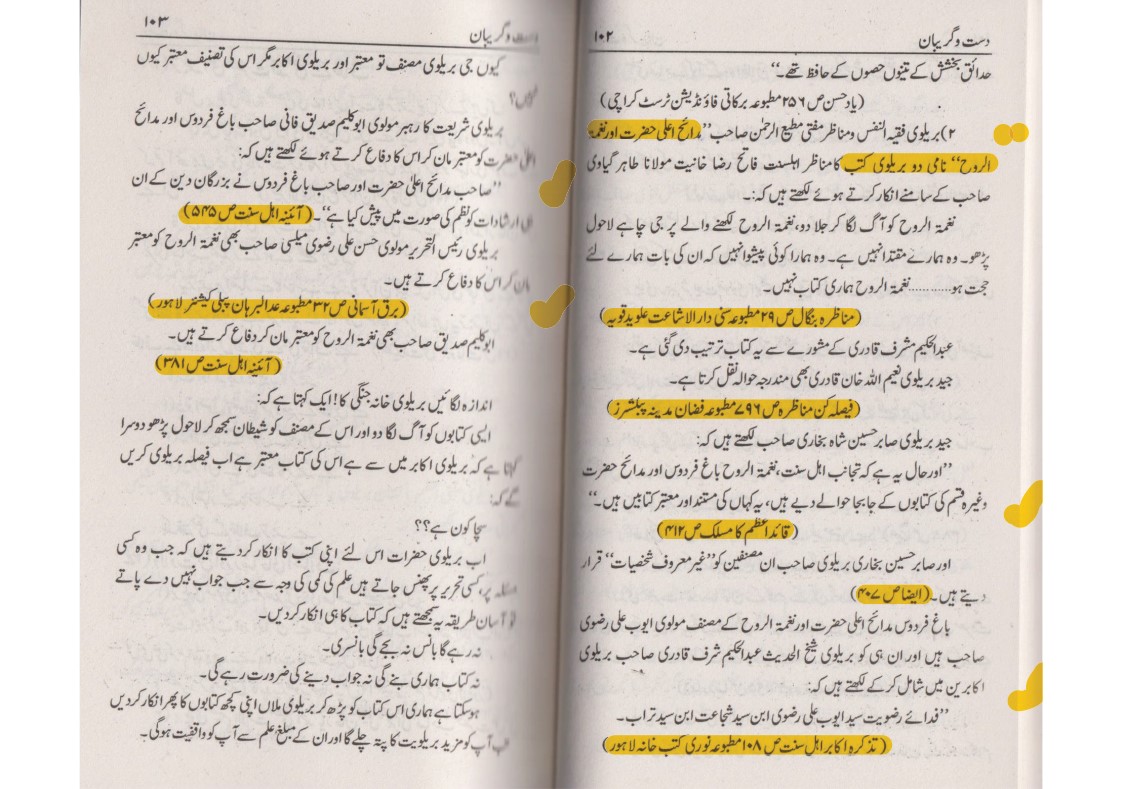 دست وگریبان ۱۰۲
حدائق بخشش کے تینوں حصوں کے حافظ تھے۔‘‘
(یاد حسن ص ۲۵۶ مطبوعہ برکاتی فاؤنڈیشن ٹرسٹ کراچی)
۲) بریلوی فقیہ النفس ومناظر مفتی مطیع الرحمٰن صاحب ’’مدائح اعلی حضرت اور نغمۃ
الروح‘‘ نامی دو بریلوی کتب کا مناظر اہلسنت فاتح رضا خانیت مولانا طاہر گیاوی
صاحب کے سامنے انکار کرتے ہوئے لکھتے ہیں کہ:۔
نغمۃ الروح کو آگ لگا کر جلا دو، نغمۃ الروح لکھنے والے پر جی چاہے لاحول
پڑھو۔ وہ ہمارے مقتدا نہیں ہے۔ وہ ہمارا کوئی پیشوا نہیں کہ ان کی بات ہمارے لئے
حجت ہو............نغمۃ الروح ہماری کتاب نہیں۔
(مناظرہ بنگال ص ۲۹ مطبوعہ سنی دارالاشاعت علویہ
عبدالحکیم مشرف قادری کے مشورے سے یہ کتاب ترتیب دی گئی ہے۔
جید بریلوی نعیم اللہ خان قادری بھی مندرجہ حوالہ نقل کرتا ہے۔
(فیصلہ کن مناظرہ ص ۷۹۶ مطبوعہ فضان مدینہ پبلشرز)
جید بریلوی صابر حسین شاہ بخاری صاحب لکھتے ہیں کہ:
’’اور حال یہ ہے کہ تجانب اہل سنت، نغمۃ الروح باغ فردوس اور مدائح حضرت
وغیرہ قسم کی کتابوں کے جابجا حوالے دیے ہیں، یہ کہاں کی مستند اور معتبر کتابیں ہیں۔‘‘
(قائد اعظم کا مسلک ص ۴۱۲)
اور صابر حسین بخاری بریلوی صاحب ان مصنفین کو ’’غیر معروف شخصیات‘‘ قرار
دیتے ہیں۔ (ایضا ص ۴۰۷)
باغ فردوس مدائح اعلی حضرت اور نغمۃ الروح کے مصنف مولوی ایوب علی رضوی
صاحب ہیں اور ان ہی کو بریلوی شیخ الحدیث عبدالحکیم شرف قادری صاحب بریلوی
اکابرین میں شامل کر کے لکھتے ہیں کہ:
’’فدائے رضویت سید ایوب علی رضوی ابن سید شجاعت ابن سید تراب۔
(تذکرہ اکابر اہل سنت ص ۱۰۸ مطبوعہ نوری کتب خانہ لاہور)
دست وگریبان ۱۰۳
کیوں جی بریلوی مصنف تو معتبر اور بریلوی اکابر مگر اس کی تصنیف معتبر کیوں
نہیں؟
بریلوی شریعت کا رہبر مولوی ابوکلیم صدیق فانی صاحب باغ فردوس اور مدائح
اعلیٰ حضرت کو معتبر مان کر اس کا دفاع کرتے ہوئے لکھتے ہیں کہ:
’’صاحب مدائح اعلیٰ حضرت اور صاحب باغ فردوس نے بزرگان دین کے ان
ہی ارشادات کو نظم کی صورت میں پیش کیا ہے‘‘۔ (آئینہ اہل سنت ص ۵۴۵)
بریلوی رئیس التحریر مولوی حسن علی رضوی میلسی صاحب بھی نغمۃ الروح کو معتبر
مان کر اس کا دفاع کرتے ہیں۔
(برق آسمانی ص ۳۲ مطبوعہ عدالبرہان پبلی کیشنز لاہور)
ابوکلیم صدیق صاحب بھی نغمۃ الروح کو معتبر مان کر دفاع کرتے ہیں۔
(آئینہ اہل سنت ص ۳۸۱)
اندازہ لگائیں بریلوی خانہ جنگی کا! ایک کہتا ہے کہ:
ایسی کتابوں کو آگ لگا دو اور اس کے مصنف کو شیطان سمجھ کر لاحول پڑھو دوسرا
کہتا ہے کہ بریلوی اکابر میں سے ہے اس کی کتاب معتبر ہے اب فیصلہ بریلوی کریں
گے کہ:
سچا کون ہے؟؟
اب بریلوی حضرات اس لئے اپنی کتب کا انکار کر دیتے ہیں کہ جب وہ کسی
مسئلہ پر، کسی تحریر پر پھنس جاتے ہیں علم کی کمی کی وجہ سے جب جواب نہیں دے پاتے
تو آسان طریقہ یہ سمجھتے ہیں کہ کتاب کا ہی انکار کر دیں۔
نہ رہے گا بانس نہ بجے گی بانسری۔
نہ کتاب ہماری بنے گی نہ جواب دینے کی ضرورت رہے گی۔
ہوسکتا ہے ہماری اس کتاب کو پڑھ کر بریلوی ملاں اپنی کچھ کتابوں کا پھر انکار کر دیں
تب آپ کو مزید بریلویت کا پتہ چلے گا اور ان کے مبلغ علم سے آپ کو واقفیت ہوگی۔